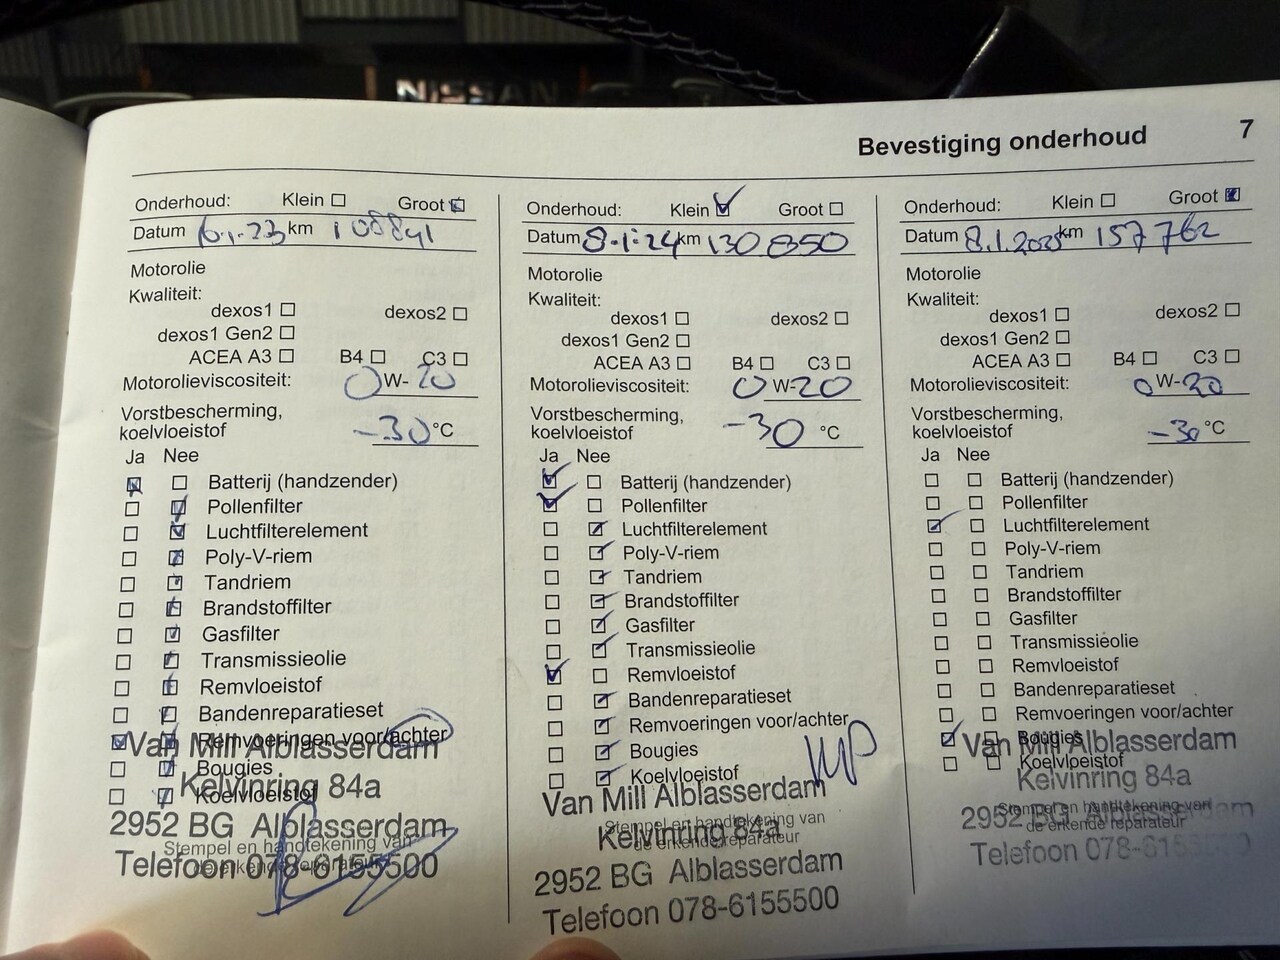 NISSAN
Bevestiging onderhoud 7
Onderhoud: Klein Groot
Datum 6.1.23 km 108841
Motorolie
Kwaliteit:
dexos1 dexos2
dexos1 Gen2
ACEA A3 B4 C3
Motorolieviscositeit: 0 W- 20
Vorstbescherming,
koelvloeistof -30 °C
Ja Nee
Batterij (handzender)
Pollenfilter
Luchtfilterelement
Poly-V-riem
Tandriem
Brandstoffilter
Gasfilter
Transmissieolie
Remvloeistof
Bandenreparatieset
Remvoeringen voor/achter
Van Mill Alblasserdam
Bougies
Kelvinring 84a
Koelvloeistof
2952 BG Alblasserdam
Stempel en handtekening van
de erkende reparateur
Telefoon 078-6155500
Onderhoud: Klein Groot
Datum 8-1-24 km 130 850
Motorolie
Kwaliteit:
dexos1 dexos2
dexos1 Gen2
ACEA A3 B4 C3
Motorolieviscositeit: 0 W-20
Vorstbescherming,
koelvloeistof -30 °C
Ja Nee
Batterij (handzender)
Pollenfilter
Luchtfilterelement
Poly-V-riem
Tandriem
Brandstoffilter
Gasfilter
Transmissieolie
Remvloeistof
Bandenreparatieset
Remvoeringen voor/achter
Bougies
Koelvloeistof
Van Mill Alblasserdam
Stempel en handtekening van
Kelvinring 84a
de erkende reparateur
2952 BG Alblasserdam
Telefoon 078-6155500
Onderhoud: Klein Groot
Datum 8.1.2025 km 157 762
Motorolie
Kwaliteit:
dexos1 dexos2
dexos1 Gen2
ACEA A3 B4 C3
Motorolieviscositeit: 0 W-20
Vorstbescherming,
koelvloeistof -30 °C
Ja Nee
Batterij (handzender)
Pollenfilter
Luchtfilterelement
Poly-V-riem
Tandriem
Brandstoffilter
Gasfilter
Transmissieolie
Remvloeistof
Bandenreparatieset
Remvoeringen voor/achter
Bougies
Van Mill Alblasserdam
Koelvloeistof
Kelvinring 84a
Stempel en handtekening van
2952 BG Alblasserdam
de erkende reparateur
Telefoon